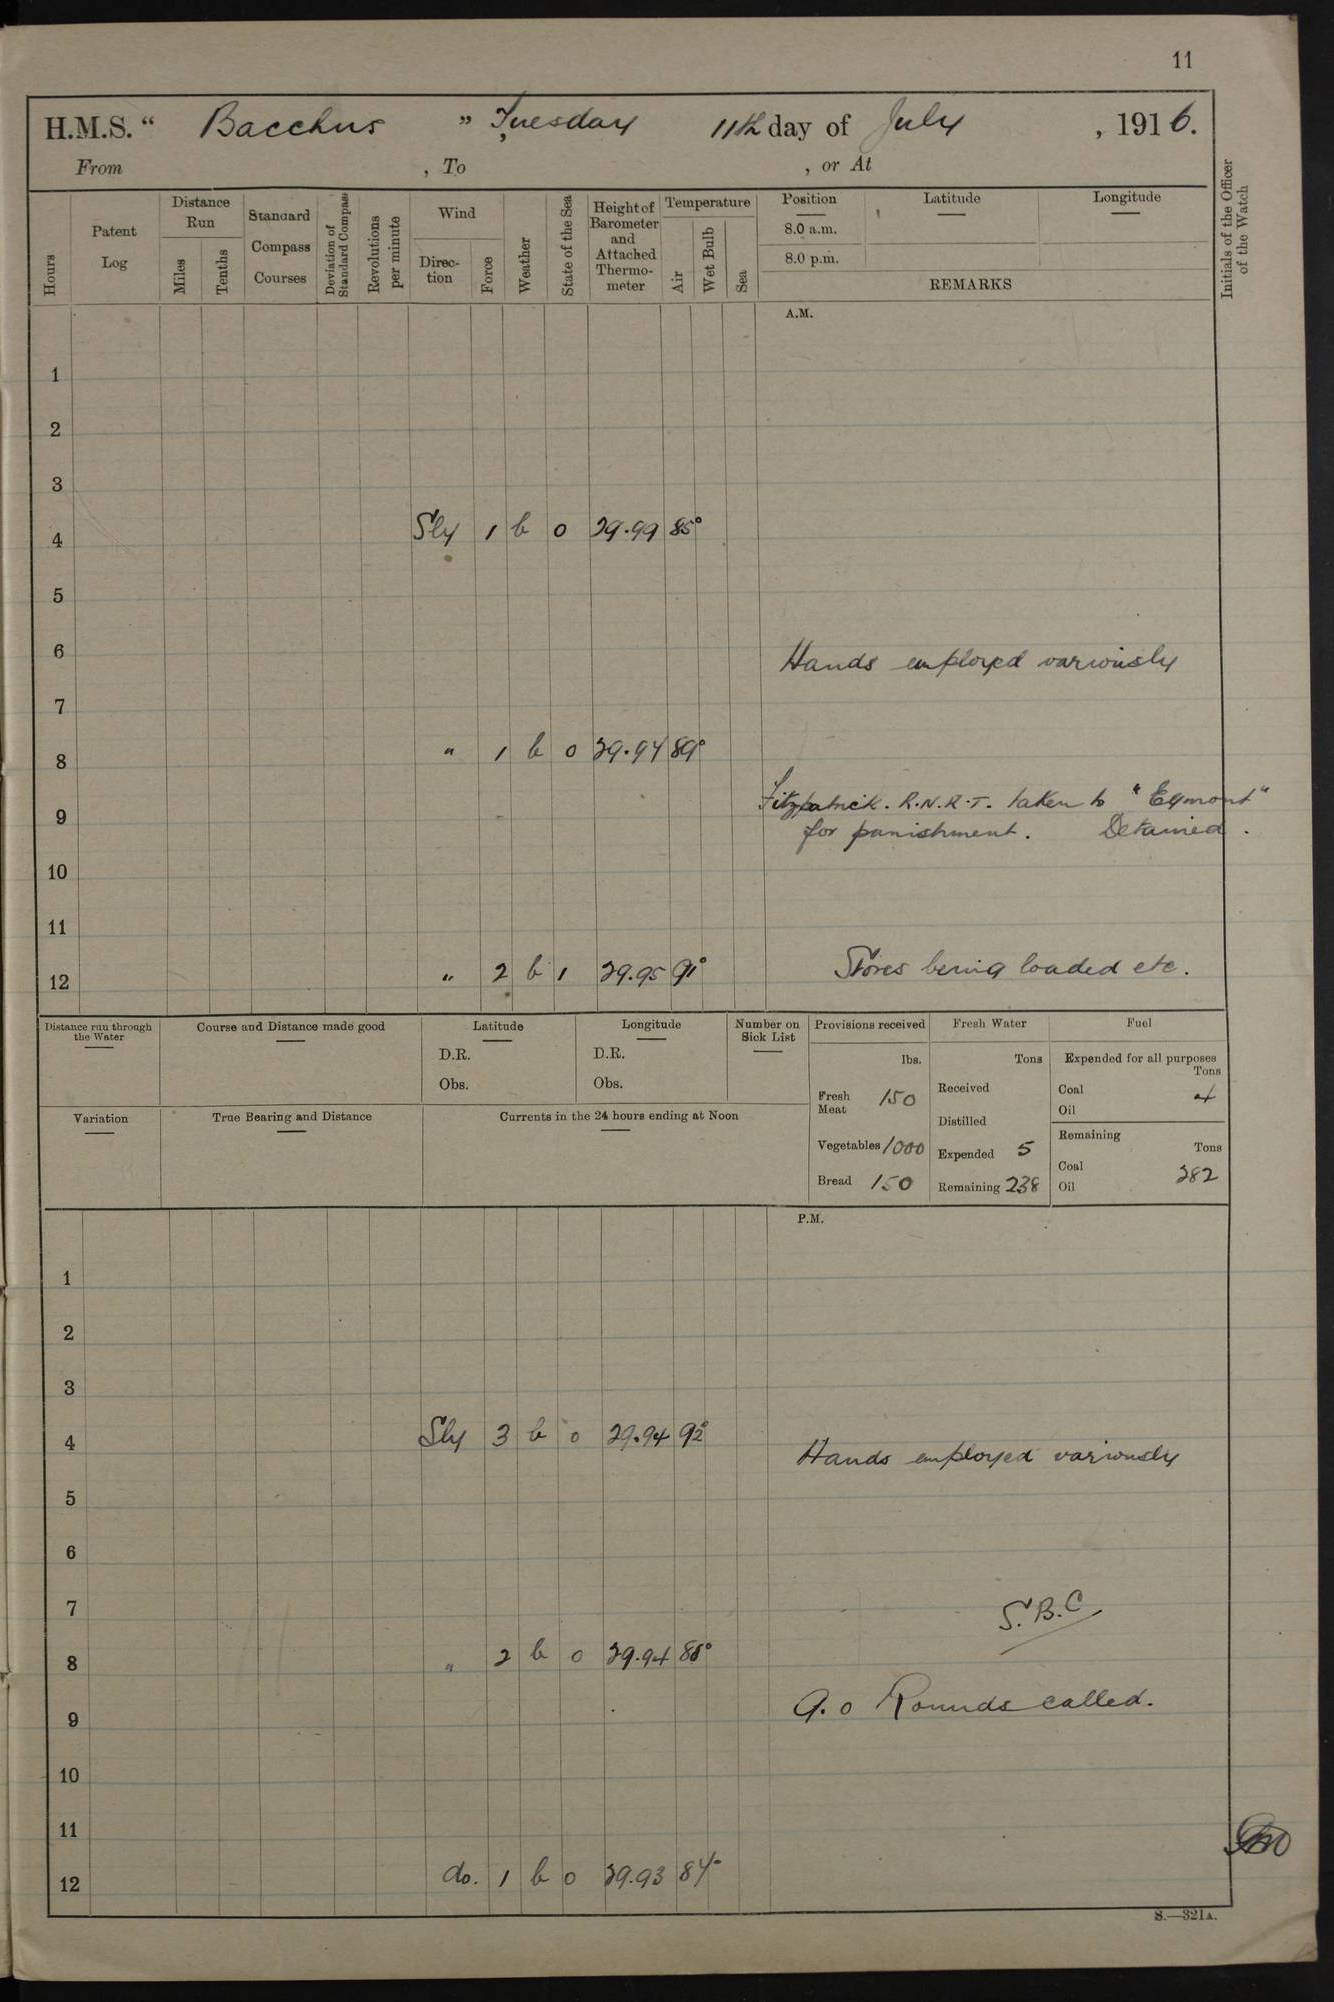 11
H.M.S. " Bacchus " Tuesday 11th day of July , 1916.
From , To , or At
Hours
Patent Log
Distance Run
Miles
Tenths
Standard Compass Courses
Deviation of Standard Compass
Revolutions per minute
Wind
Direction
Force
Weather
State of the Sea
Height of Barometer and Attached Thermometer
Temperature
Air
Wet Bulb
Sea
Position
8.0 a.m.
8.0 p.m.
Latitude
Longitude
REMARKS
Initials of the Officer of the Watch
A.M.
1
2
3
4 Sly 1 b 0 29.99 85°
5
6 Hands employed variously
7
8 " 1 b 0 29.94 89°
Fitzpatrick. R.N.R.T. taken to "Egmont"
9 for punishment. Detained.
10
11
12 " 2 b 1 29.95 91° Stores being loaded etc.
Distance run through the Water
Course and Distance made good
Latitude
D.R.
Obs.
Longitude
D.R.
Obs.
Number on Sick List
Provisions received
lbs.
Fresh Meat 150
Vegetables 1000
Bread 150
Fresh Water
Tons
Received
Distilled
Expended 5
Remaining 238
Fuel
Expended for all purposes
Tons
Coal 4
Oil
Remaining
Tons
Coal 282
Oil
Variation
True Bearing and Distance
Currents in the 24 hours ending at Noon
P.M.
1
2
3
4 Sly 3 b 0 29.94 92° Hands employed variously
5
6
7 S.B.C
8 " 2 b 0 29.94 88°
9 9.0 Rounds called.
10
11
12 do. 1 b 0 29.93 84°
S.—321A.